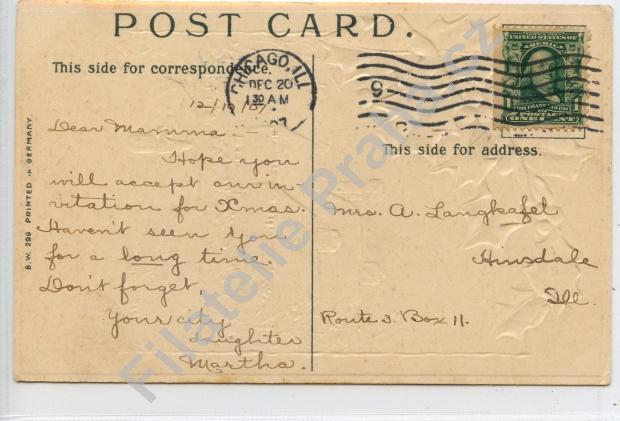 POST CARD.
This side for correspondence.
CHICAGO, ILL
DEC 20
1 30 AM
07
9
UNITED STATES OF
AMERICA
1 1
POSTAGE
ONE CENT
This side for address.
12/19/07.
Dear Mamma:-
Hope you
will accept our in
vitation for Xmas.
Haven't seen you
for a long time.
Don't forget,
Your city
Daughter
Martha.
Mrs. A. Langkafel
Hinsdale
Ill.
Route 3. Box 11.
B.W. 299 PRINTED IN GERMANY.
Filatelie Praha.cz